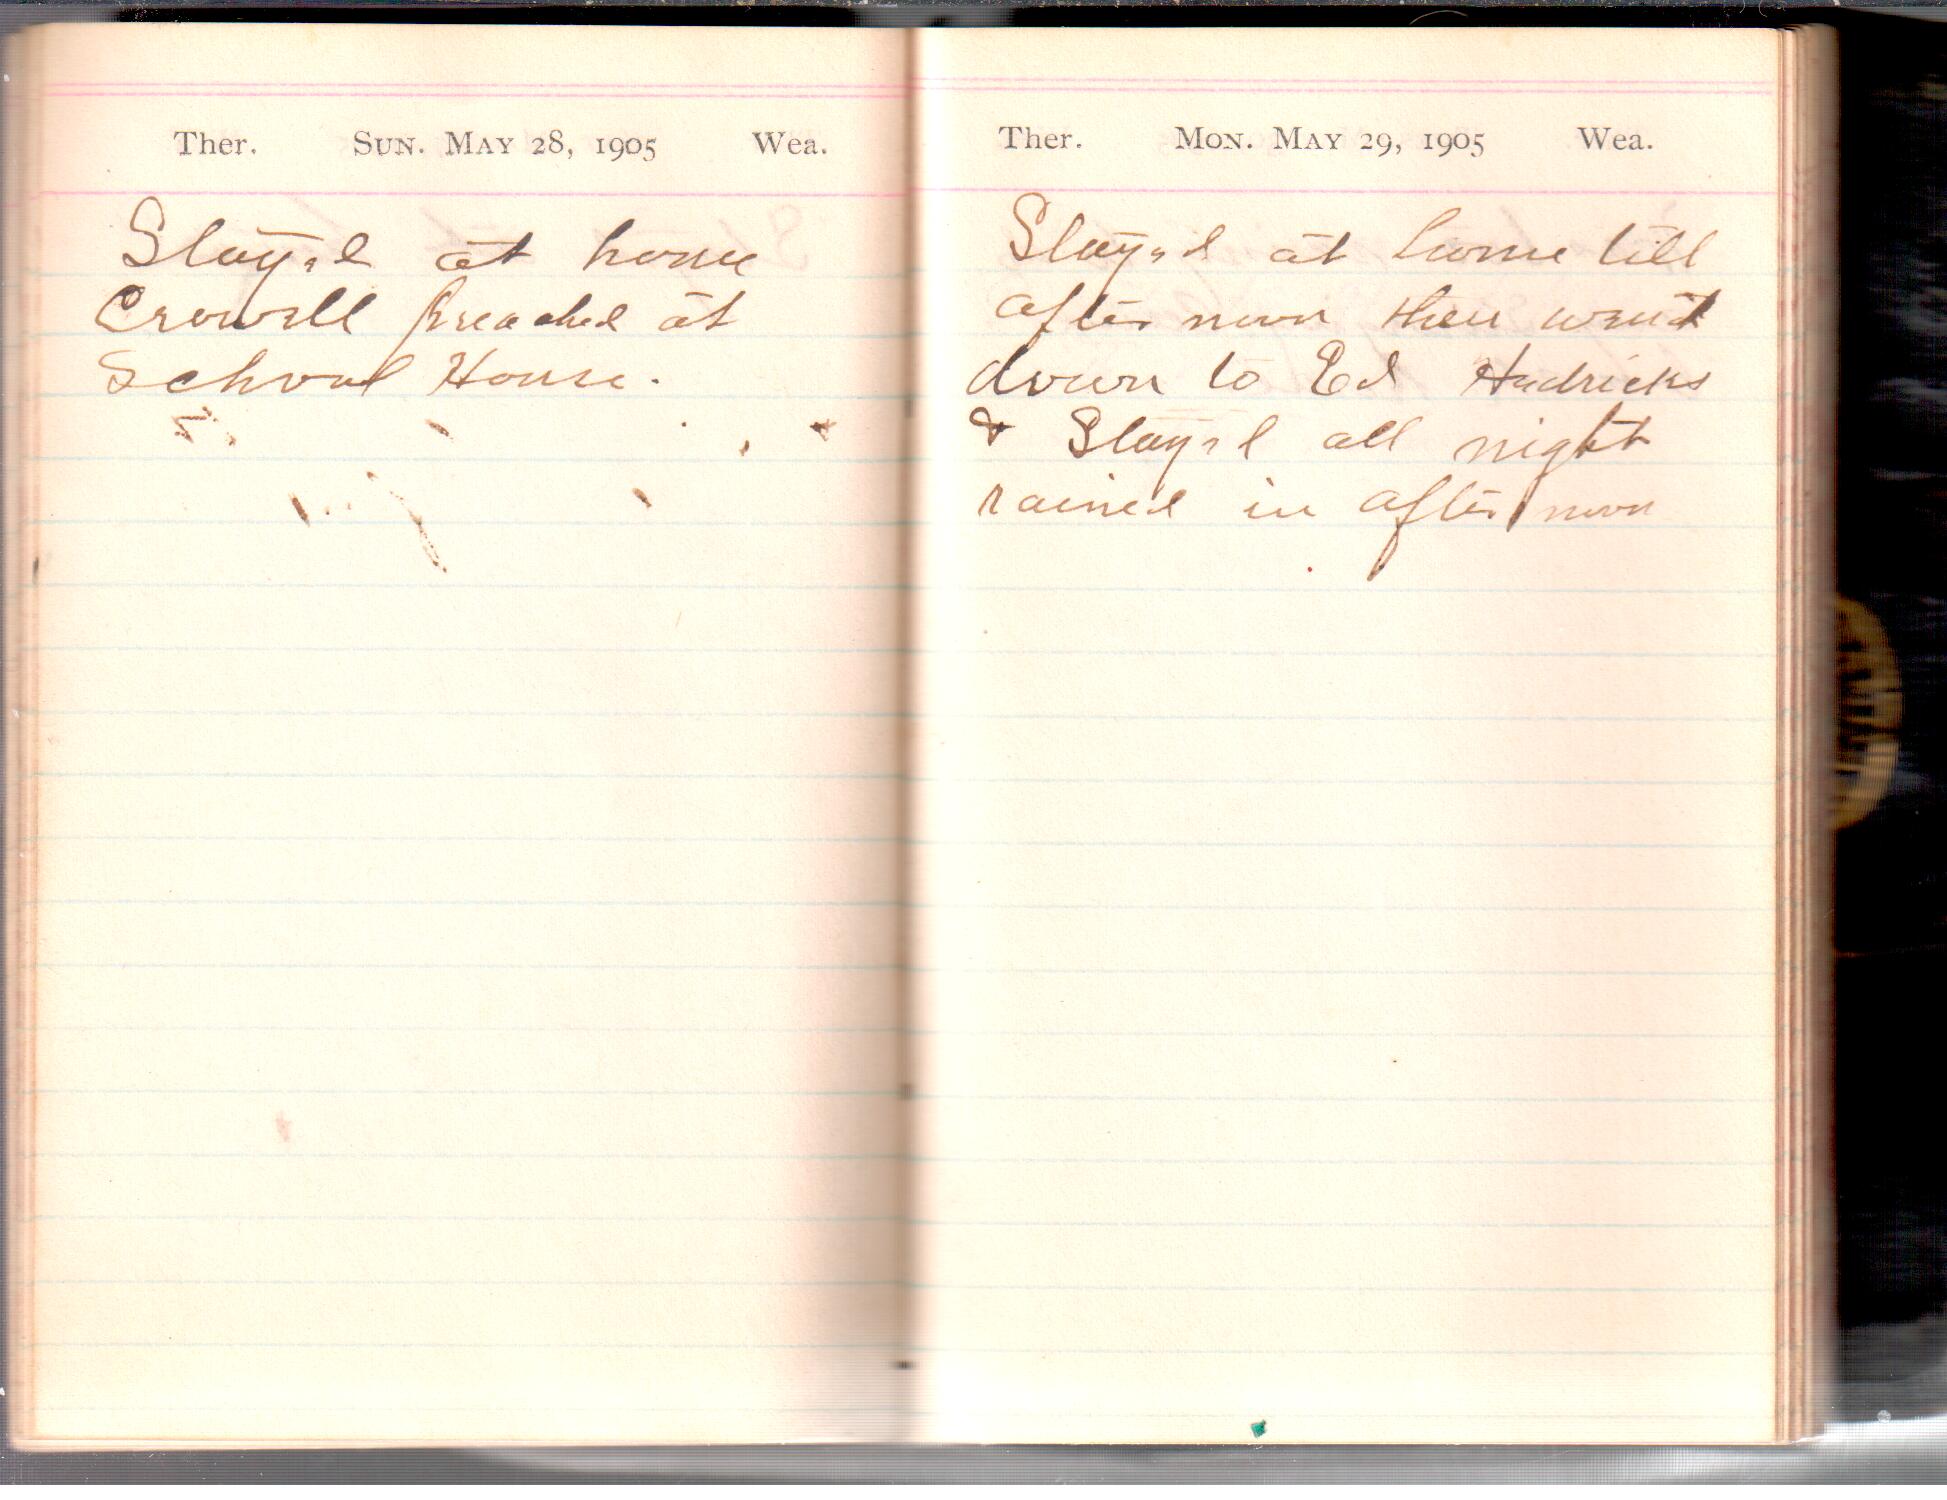 Ther. Sun. May 28, 1905 Wea.
Stayed at home
Crowell Preached at
School House.
Ther. Mon. May 29, 1905 Wea.
Stayed at home till
after noon then went
down to Ed Hedricks
& Stayed all night
rained in after noon